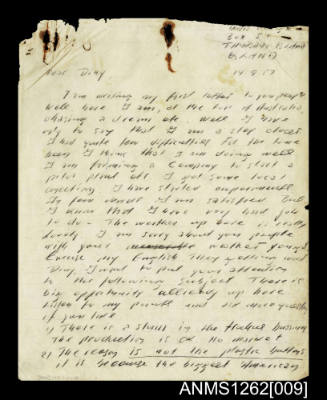 Box 5
THURSDAY ISLAND
14.8.57
Dear Diny
I am writing my first letter to you people
well here I am, at the tip of Australia
chasing a dream etc. Well I have
only to say that I am a step closer
I had quite few difficulties for the time
being I think that I am doing well
I am forming a Company to start a
pilot plant etc. I got some local
I have started experiments
In few words I'm satisfied But
I know that I have very hard job
to do - The weather up here is really
lovely I am sorry about you people
with yours weather
Excuse my English
Diny I want to put your attention
to the following subject There is
big opportunity up here
listen to my
if you like
1) There is a in the trochus business
The production is OK No market
2) The reason is not the plastic buttons
it is because the biggest American
ANMS1262[009]